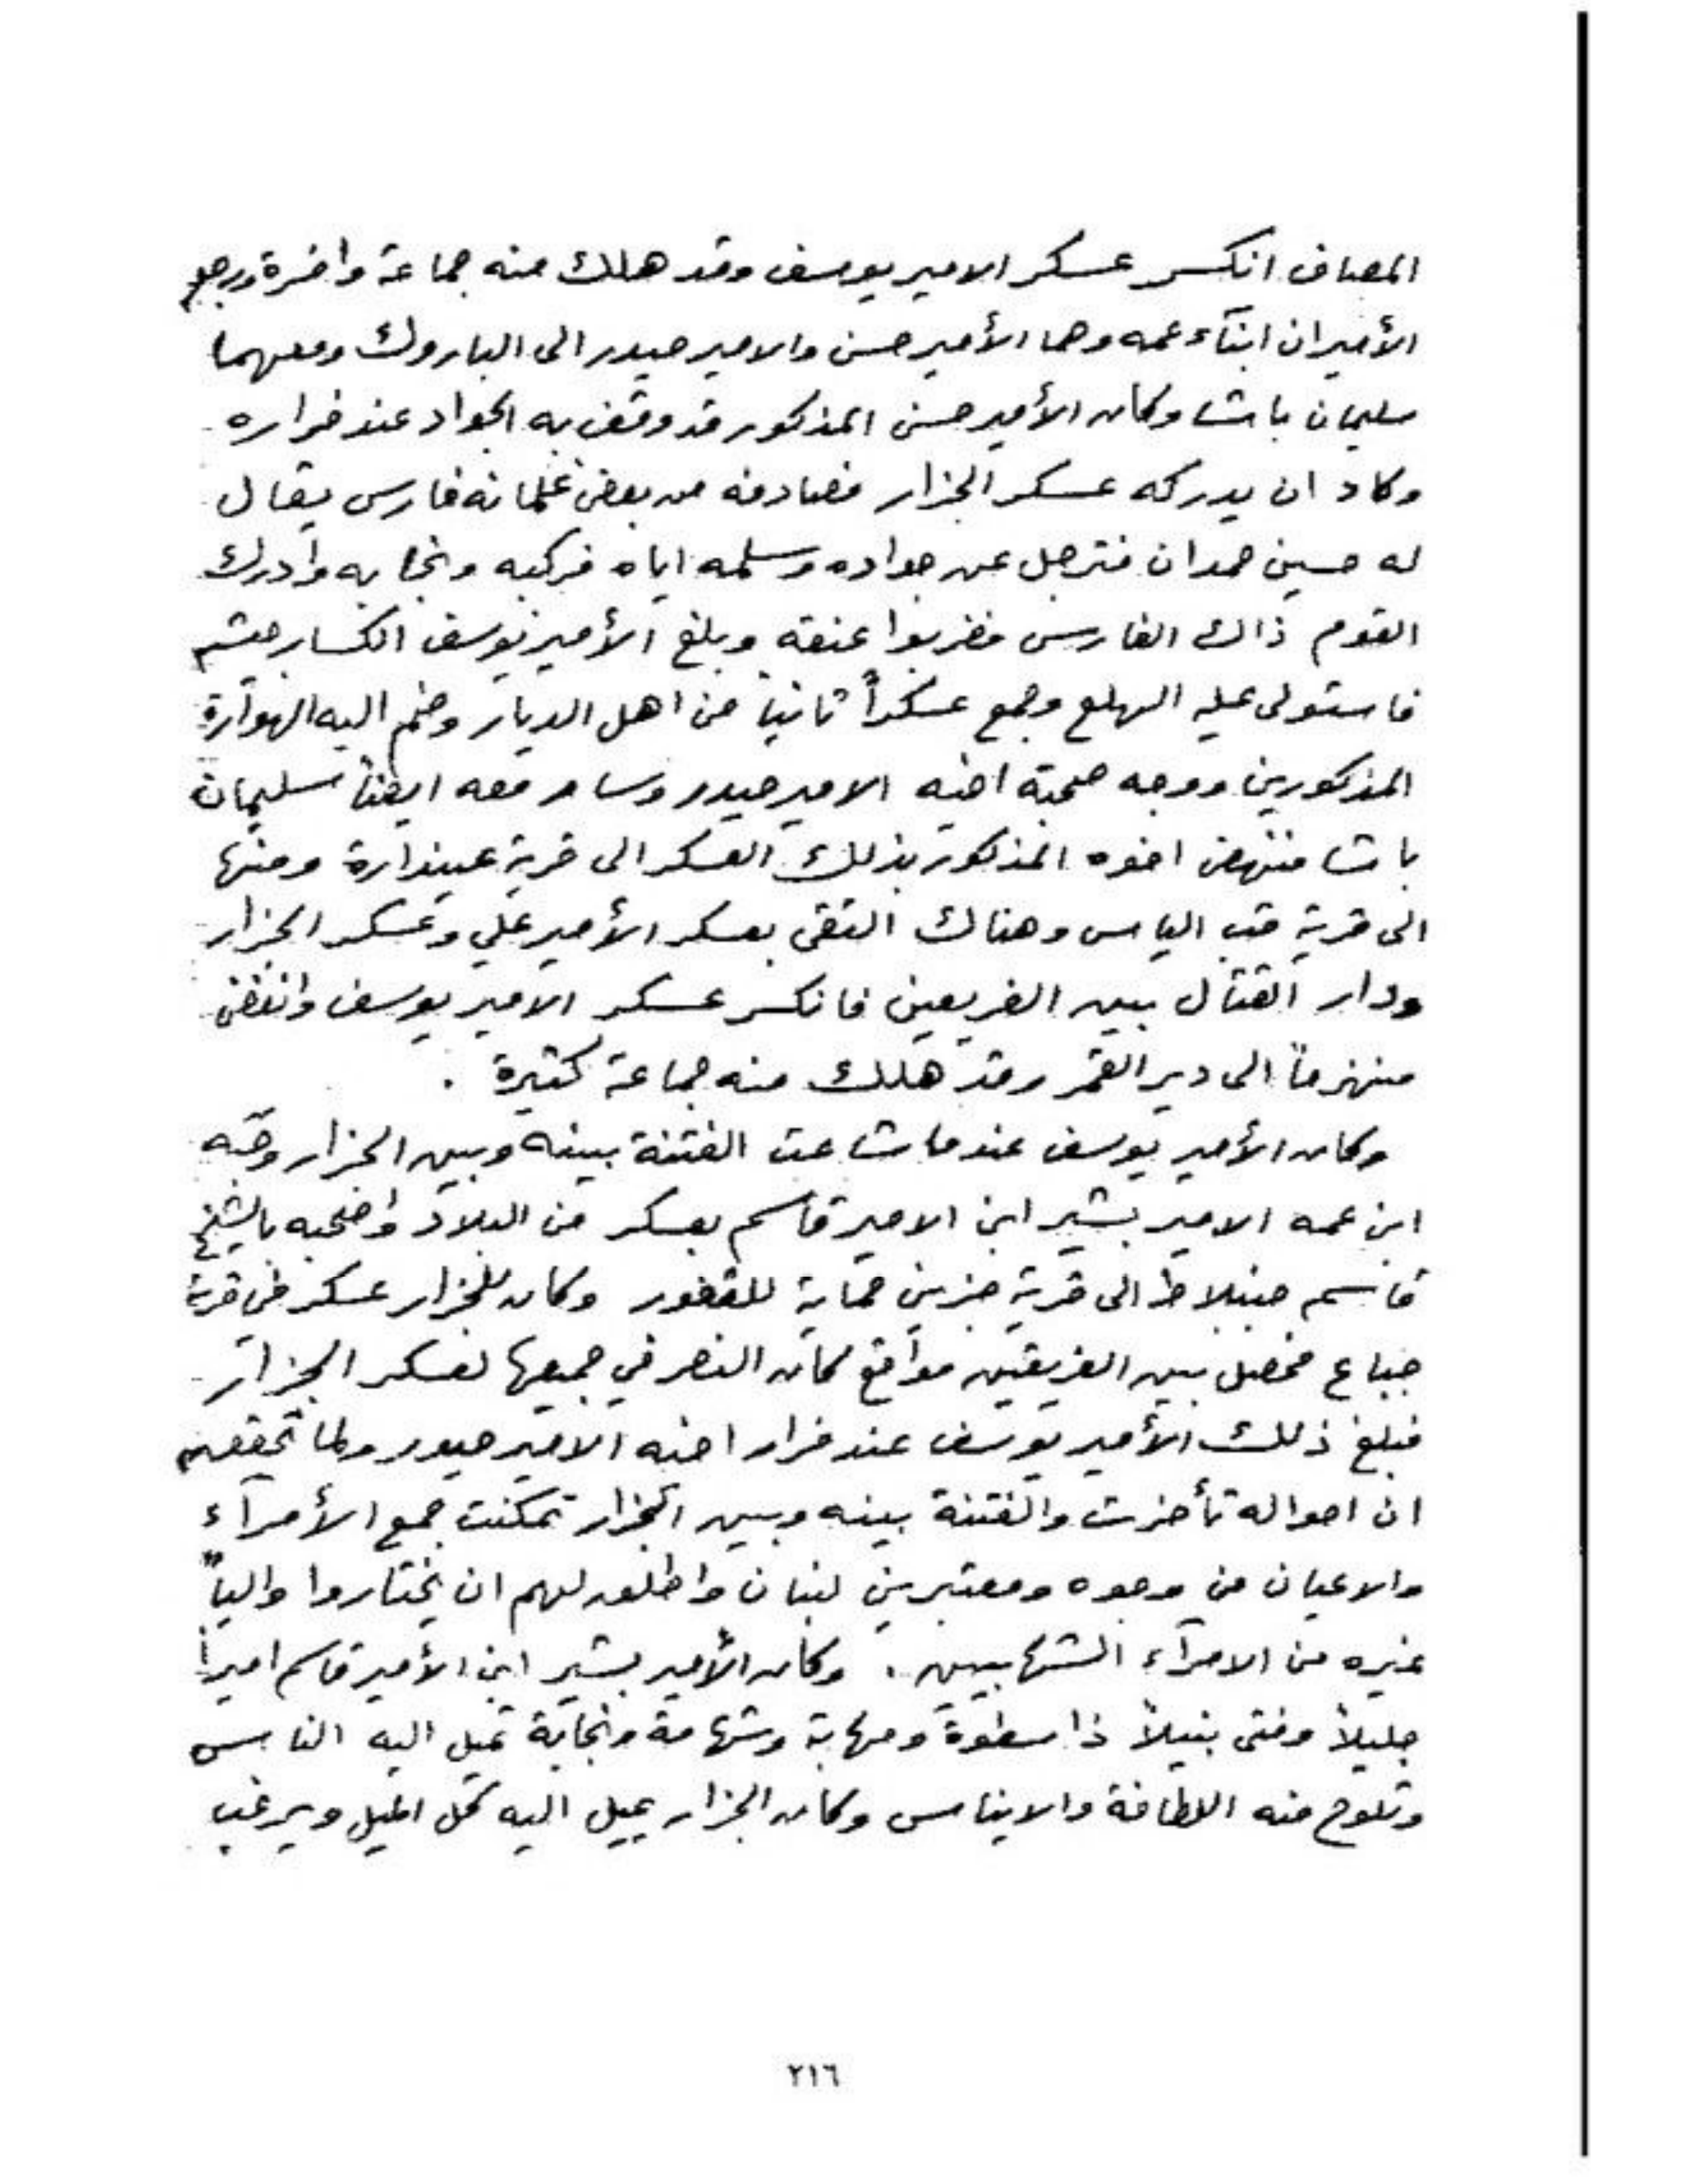 المصاف انكسر عسكر الامير يوسف وقد هلك منه جماعة وافرة ورجع
الأميران ابنآء عمه وهما الأمير حسن والامير حيدر الى الباروك ومعهما
سليمان باشا وكان الأمير حسن المذكور قد وقف به الجواد عند فراره
وكاد ان يدركه عسكر الجزار فصادفه من بعض غلمانه فارس يقال
له حسين حمدان فترجل عن جواده وسلمه اياه فركبه ونجا به وأدرك
القوم ذاك الفارس فضربوا عنقه وبلغ الأمير يوسف انكسار جيشه
فاستولى عليه الهلع وجمع عسكراً ثانياً من اهل الديار وضم اليه الهوارة
المذكورين ووجه صحبة اخيه الامير حيدر وسار معه ايضاً سليمان
باشا فنهض اخوه المذكور بذلك العسكر الى قرية عيندارة ومنها
الى قرية قب الياس وهناك التقى بعسكر الأمير علي وعسكر الجزار
ودار القتال بين الفريقين فانكسر عسكر الامير يوسف وانفض
منهزماً الى دير القمر وقد هلك منه جماعة كثيرة .
وكان الأمير يوسف عندما شاعت الفتنة بينه وبين الجزار وجّه
ابن عمه الامير بشير ابن الامير قاسم بعسكر من البلاد واصحبه بالشيخ
قاسم جنبلاط الى قرية جزين حماية للقصور وكان للجزار عسكر في قرية
جباع فحصل بين الفريقين مواقع كان النصر في جميعها لعسكر الجزار
فبلغ ذلك الأمير يوسف عند فرار اخيه الامير حيدر ولما تحقق
ان احواله تأخرت والفتنة بينه وبين الجزار تمكنت جمع الأمرآء
والاعيان من وجوه ومعتبرين لبنان واطلق لهم ان يختاروا والياً
غيره من الامرآء الشهابيين . وكان الأمير بشير ابن الأمير قاسم اميراً
جليلاً وفتى نبيلاً ذا سطوة ومهابة وشهامة ونجابة تميل اليه الناس
وتلوح منه اللطافة والايناس وكان الجزار يميل اليه كل الميل ويرغب
٢١٦